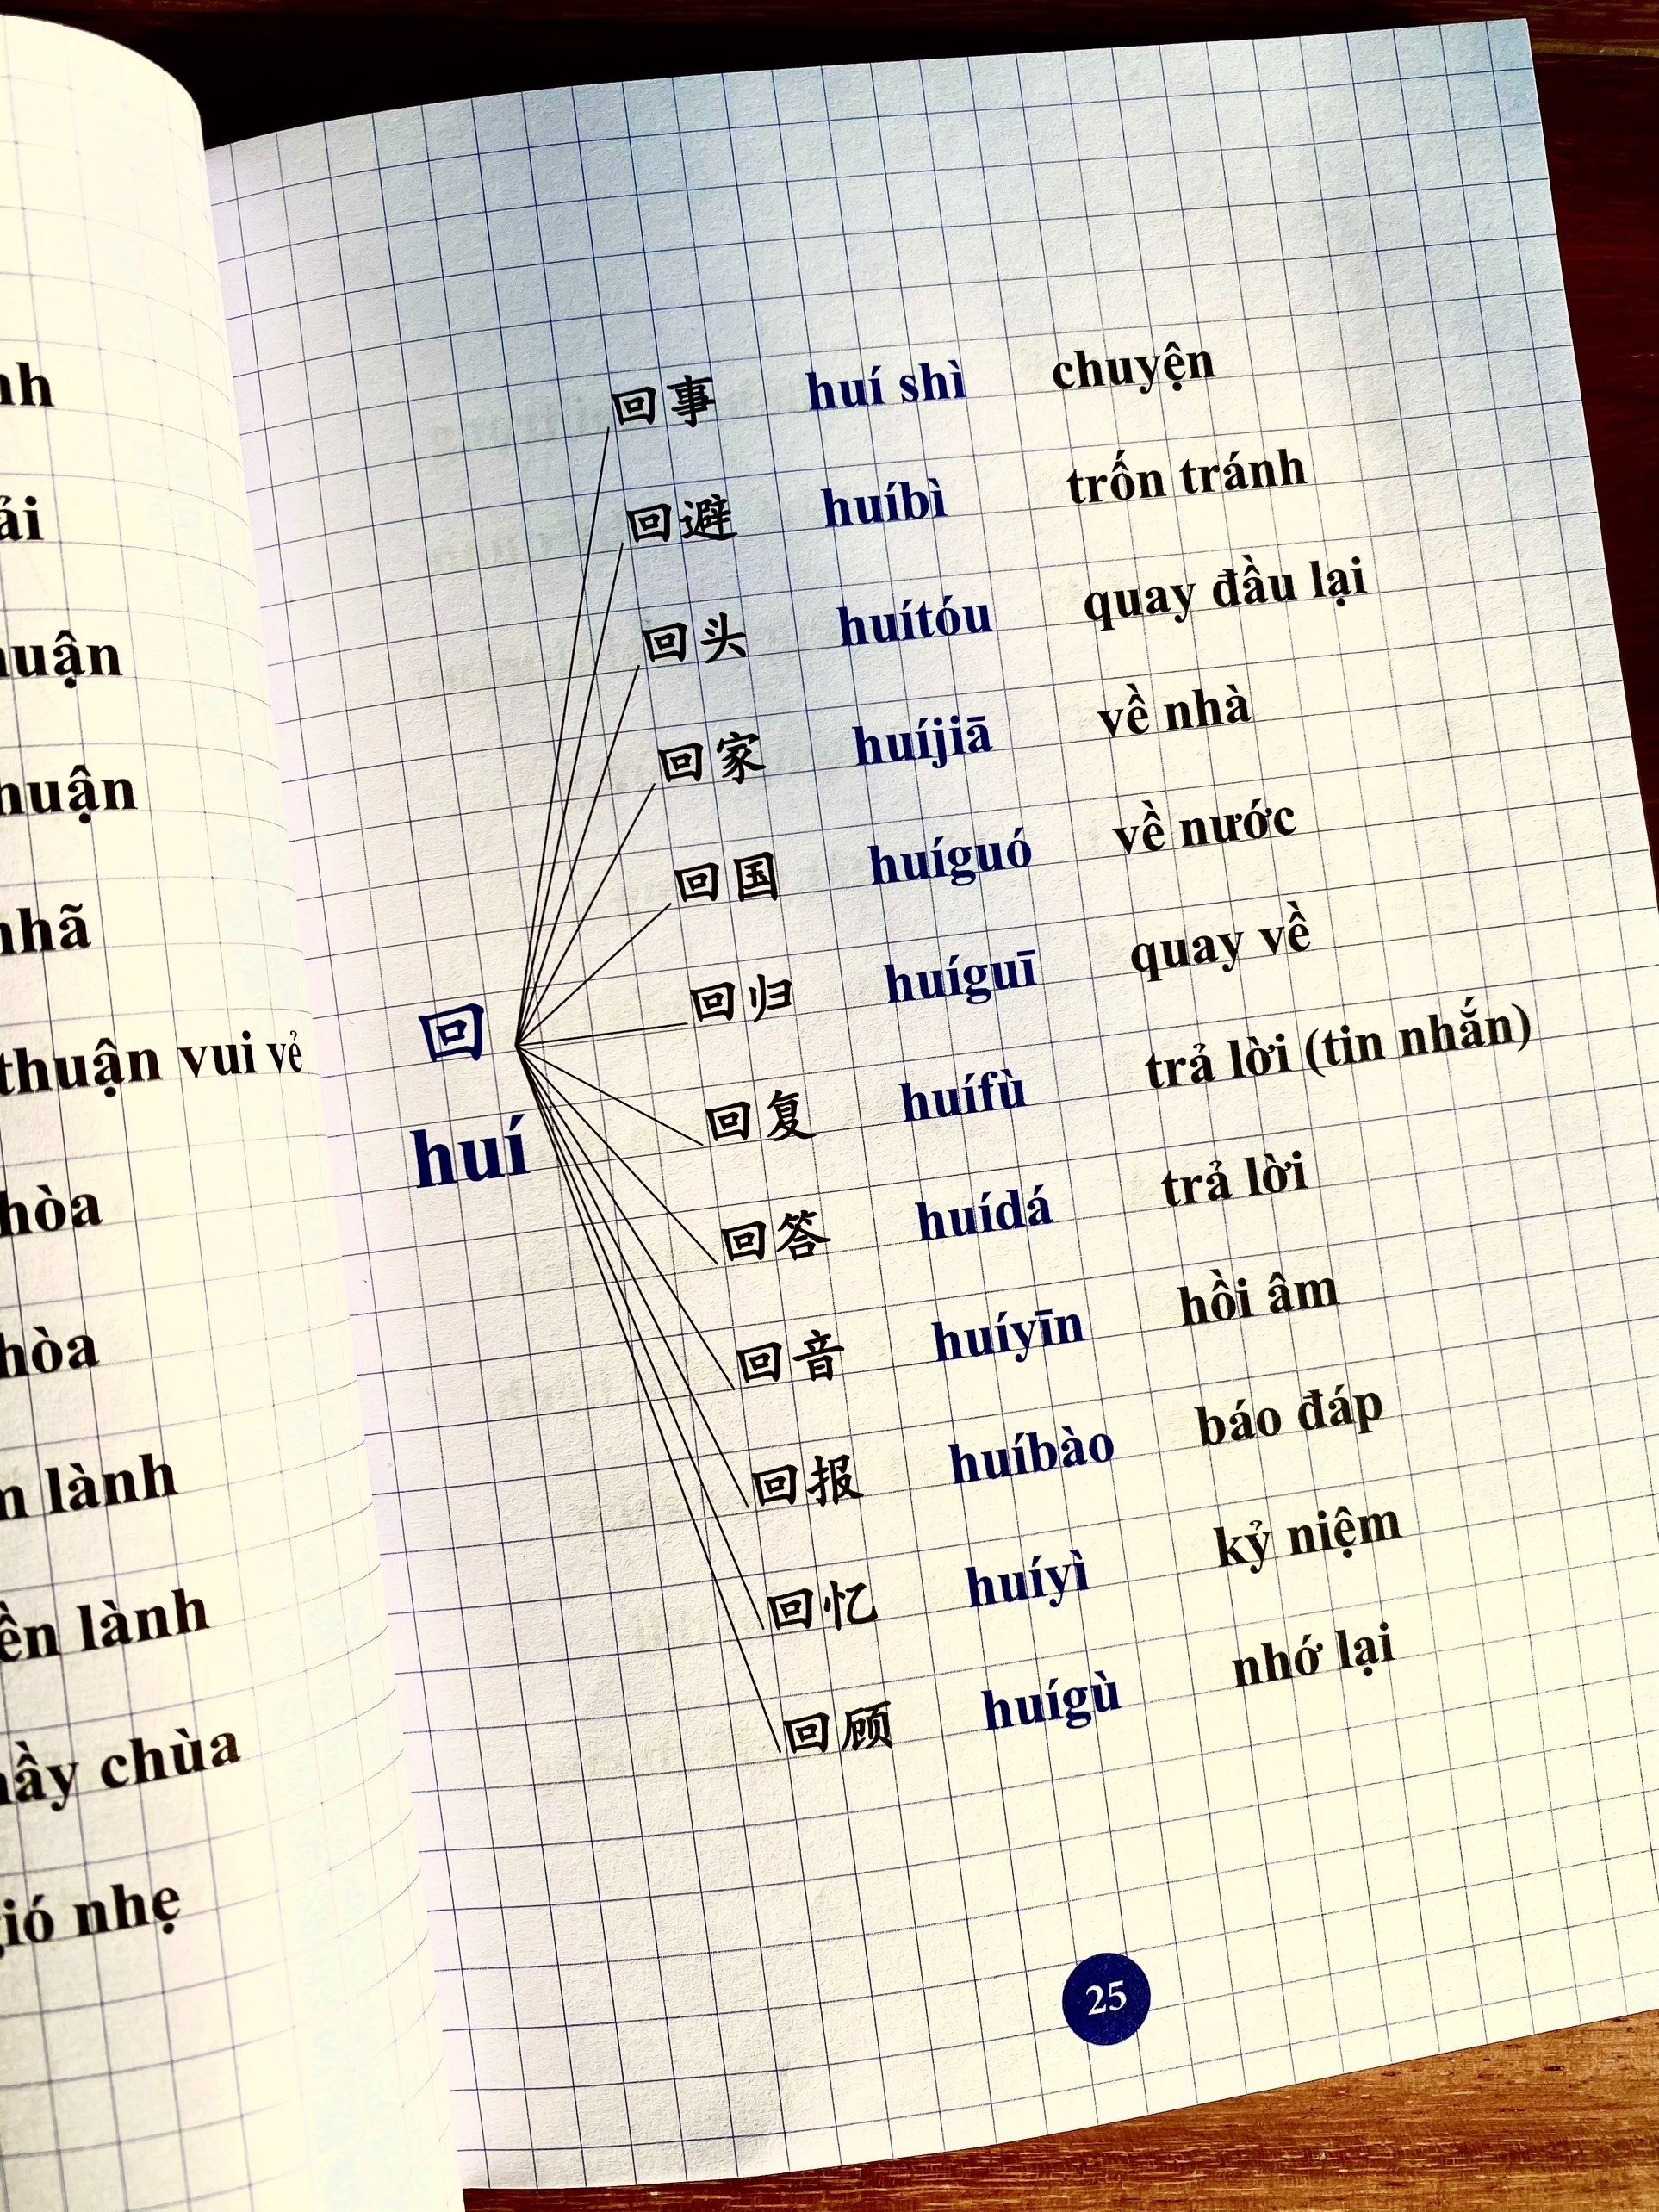 thuận vui vẻ
hòa
hòa
lành
lành
chùa
nhẹ
回事 huí shì chuyện
回避 huíbì trốn tránh
回头 huítóu quay đầu lại
回家 huíjiā về nhà
回国 huíguó về nước
回归 huíguī quay về
回
huí
回复 huífù trả lời (tin nhắn)
回答 huídá trả lời
回音 huíyīn hồi âm
回报 huíbào báo đáp
回忆 huíyì kỷ niệm
回顾 huígù nhớ lại
25